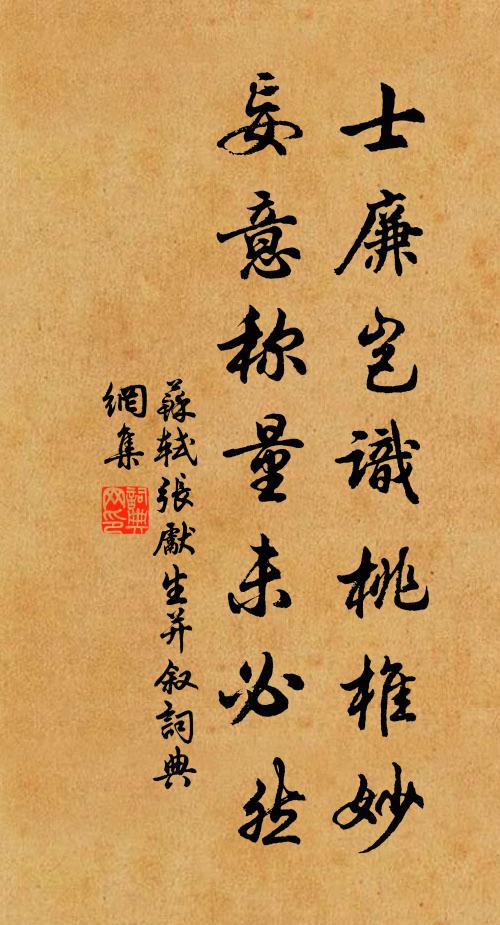 士廉岂識桃椎妙
妄意称量未必然
蘇軾張獻生并叙詞典
網集
詞典
网印